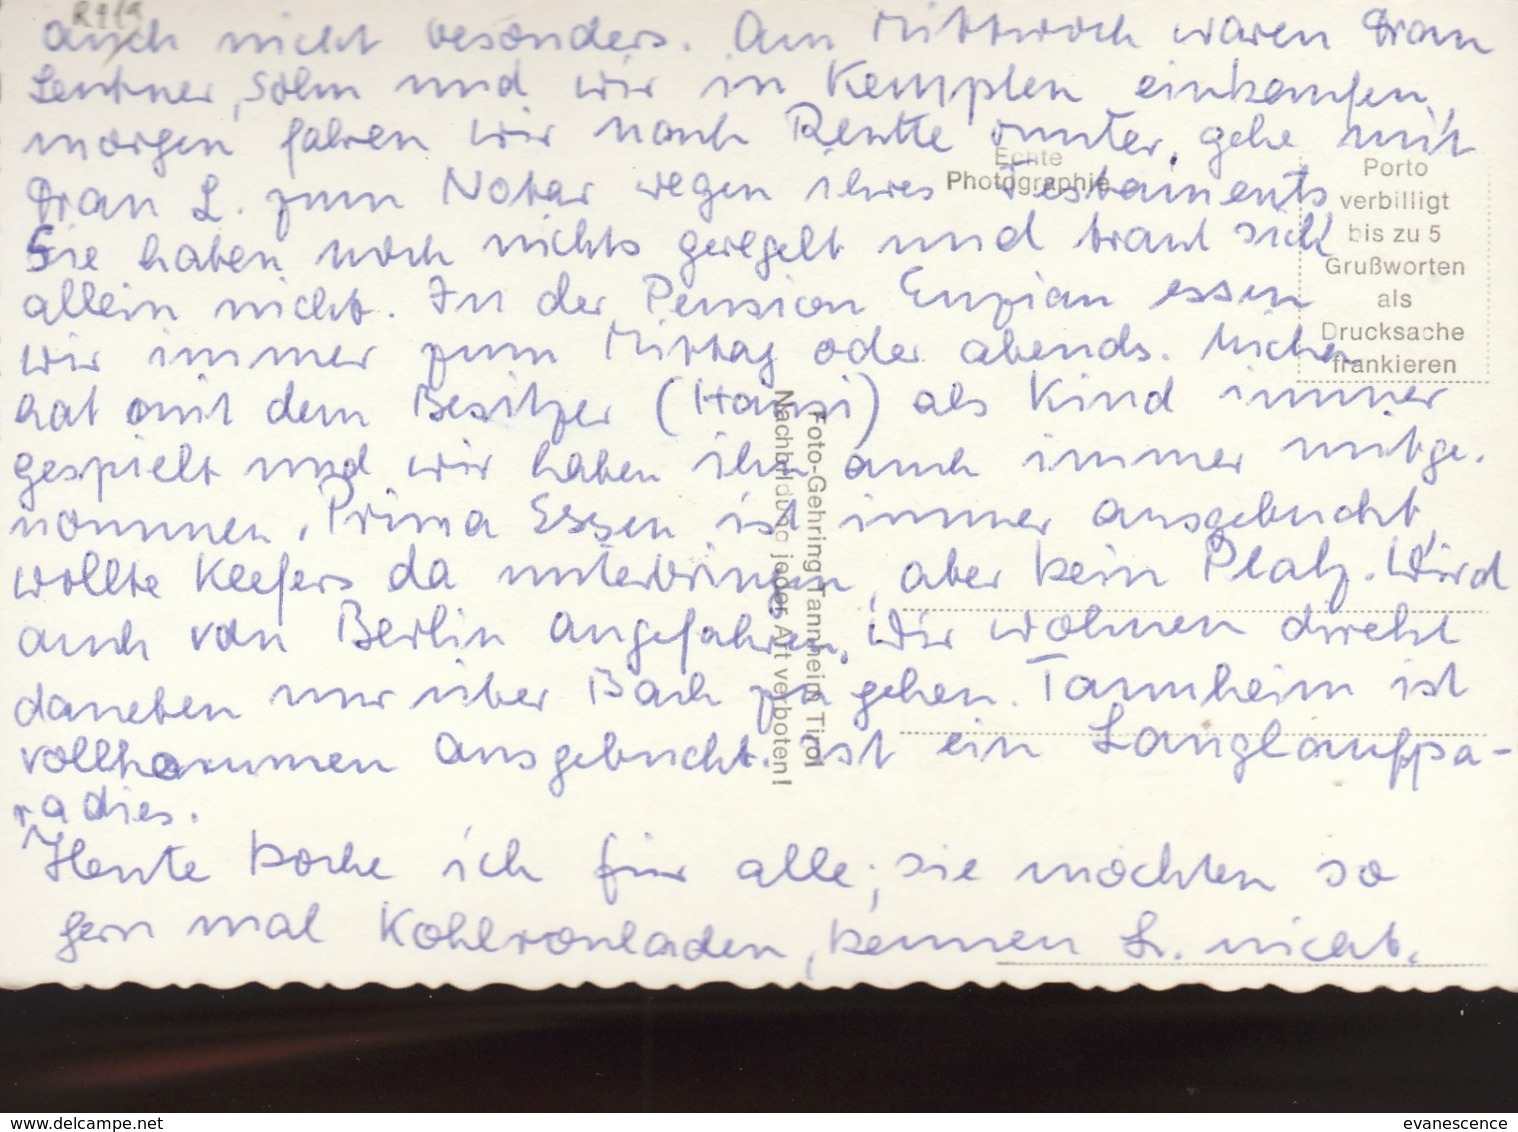 R919
auch nicht besonders. Am Mittwoch waren Frau
Lentner, Sohn und wir in Kempten einkaufen,
morgen fahren wir nach Reutte runter, gehe mit
Frau L. zum Notar wegen ihres Testaments
Sie haben noch nichts geregelt und traut sich
allein nicht. In der Pension Enzian essen
wir immer zum Mittag oder abends.
hat mit dem Besitzer (Hansi) als Kind immer
gespielt und wir haben ihn auch immer mitge-
nommen. Prima Essen ist immer ausgebucht,
wollte Keefers da unterbringen, aber kein Platz. Wird
auch von Berlin angefahren. Wir wohnen direkt
daneben nur über Bach zu gehen. Tannheim ist
vollkommen ausgebucht. ist ein Langlaufpa-
radies.
Heute koche ich für alle, sie möchten so
gern mal Kohlrouladen, kennen L. nicht.
Echte
Photographie
Porto
verbilligt
bis zu 5
Grußworten
als
Drucksache
frankieren
Foto-Gehring Tannheim Tirol
Nachbildung jeder Art verboten!
www.delcampe.net
evanescence